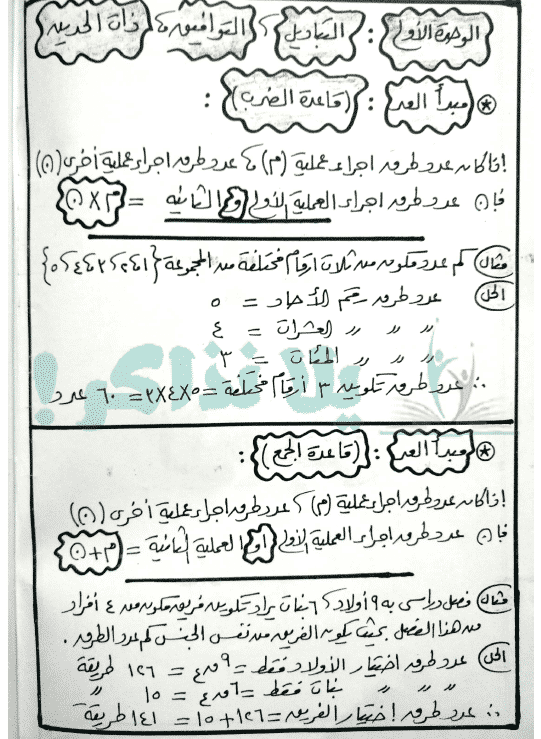 الوحدة الأولى : التباديل ، التوافيق ، ذات الحدين
* مبدأ العد : (قاعدة الضرب) :
إذا كان عدد طرق اجراء عملية (م) ، عدد طرق اجراء عملية أخرى (ن)
فإن عدد طرق اجراء العملية الأولى و الثانية = م × ن
مثال كم عدد مكون من ثلاث أرقام مختلفة من المجموعة {١، ٢، ٣، ٤، ٥}
الحل عدد طرق رقم الأحاد = ٥
〃 〃 〃 العشرات = ٤
〃 〃 〃 المئات = ٣
∴ عدد طرق تكوين ٣ أرقام مختلفة = ٥×٤×٣ = ٦٠ عدد
يلا نذاكر !
* مبدأ العد : (قاعدة الجمع) :
إذا كان عدد طرق اجراء عملية (م) ، عدد طرق اجراء عملية أخرى (ن)
فإن عدد طرق اجراء العملية الأولى أو العملية الثانية = م + ن
مثال فصل دراسى به ٩ أولاد ، ٦ بنات يراد تكوين فريق مكون من ٤ أفراد
من هذا الفصل بحيث يكون الفريق من نفس الجنس كم عدد الطرق .
الحل عدد طرق اختيار الأولاد فقط = ٩ق٤ = ١٢٦ طريقة
〃 〃 〃 بنات فقط = ٦ق٤ = ١٥ 〃
∴ عدد طرق إختيار الفريق = ١٢٦ + ١٥ = ١٤١ طريقة